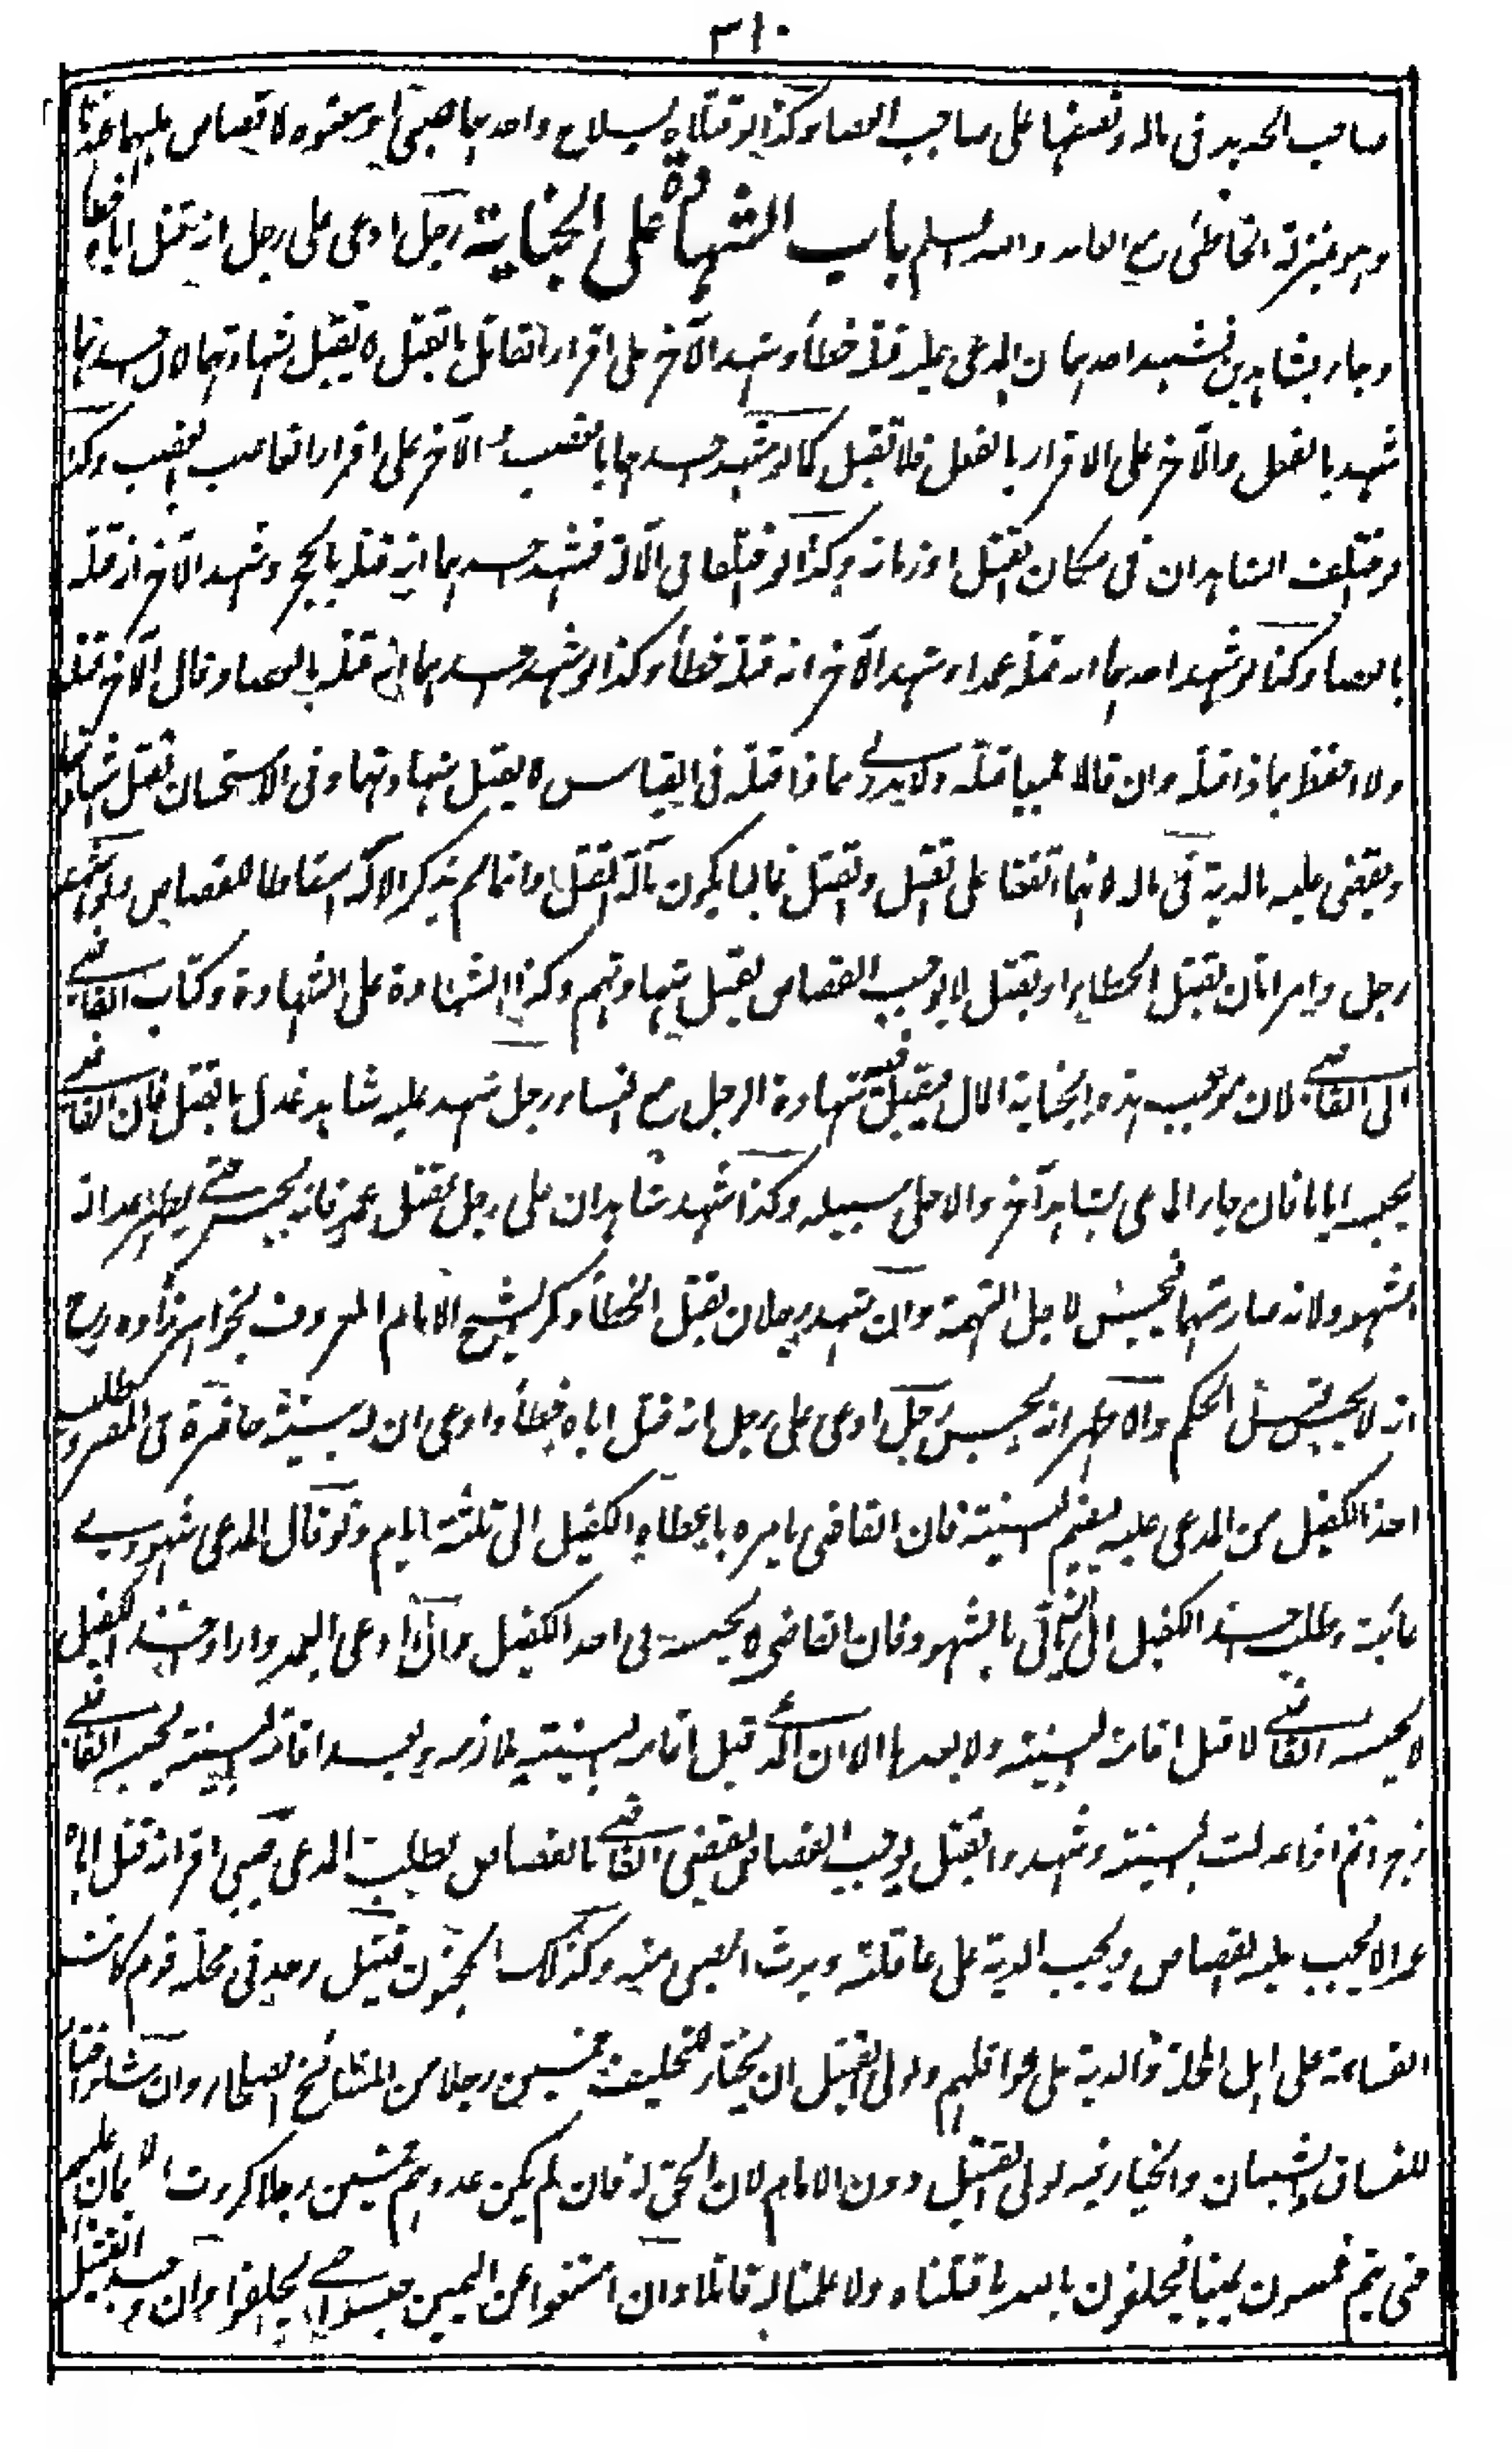 ٣١٠
صاحب الحديد فى ماله ونصفها على صاحب العصا وكذا لو قتلاه بسلاح واحدهما صبى او معتوه لا قصاص عليهما عندنا
وهو بمنزلة الخاطئ مع العامد والله اعلم باب الشهادة على الجناية رجل ادعى على رجل انه قتل اباه خطأ
وجاء بشاهدين فشهد احدهما ان المدعى عليه قتله خطأ وشهد الآخر على اقرار القاتل بالقتل لا تقبل شهادتهما لان احدهما
شهد بالفعل والآخر على الاقرار بالفعل فلا تقبل كما لو شهد احدهما بالغصب والآخر على اقرار الغاصب بالغصب وكذا
لو اختلف الشاهدان فى مكان القتل او زمانه وكذا لو اختلفا فى الآلة فشهد احدهما انه قتله بالحجر وشهد الآخر انه قتله
بالعصا وكذا لو شهد احدهما انه قتله عمدا وشهد الآخر انه قتله خطأ وكذا لو شهد احدهما انه قتله بالعصا وقال الآخر قتله
ولا احفظ بماذا قتله وان قالا جميعا قتله ولا يدرى بماذا قتله فى القياس لا يقبل شهادتهما وفى الاستحسان تقبل شهادتهما
ويقضى عليه بالدية فى ماله لانهما اتفقا على القتل والقتل غالبا يكون بآلة القتل وانما لم يذكر الآلة اسقاطا للقصاص ولو شهد
رجل وامرأتان بقتل الخطاء او بقتل لا يوجب القصاص يقبل شهادتهم وكذا الشهادة على الشهادة وكتاب القاضى
الى القاضى لان موجب هذه الجناية المال فيقبل فيه شهادة الرجل مع النساء رجل شهد عليه شاهد عدل بالقتل فان القاضى
يحبسه اياما فان جاء المدعى بشاهد آخر والا خلى سبيله وكذا شهد شاهدان على رجل بقتل عمد فانه يحبس حتى يظهر عدالة
الشهود ولانه صار متهما فيحبس لاجل التهمة وان شهد رجلان بقتل الخطأ ذكر الشيخ الامام المعروف بخواهرزاده رح
انه لا يحبس قبل الحكم والاظهر انه يحبس رجل ادعى على رجل انه قتل اباه خطأ وادعى ان له بينة حاضرة فى المصر وطلب
اخذ الكفيل من المدعى عليه ليقيم البينة فان القاضى يامره باعطاء الكفيل الى ثلثة ايام ولو قال المدعى شهودى
غائبة وطلب اخذ الكفيل الى ان يأتى بالشهود فان القاضى لا يجيبه فى اخذ الكفيل وان ادعى العمد واراد اخذ الكفيل
لا يجيبه القاضى لا قبل اقامة البينة ولا بعدها الا ان قبل اقامة البينة يلازمه وبعد اقامة البينة يحبسه القاضى
زجرا ثم اذا عدلت البينة وشهدوا بقتل يوجب القصاص يقضى القاضى بالقصاص بطلب المدعى صبى اقر انه قتل اباه
عمدا لا يجب عليه القصاص ويجب الدية على عاقلته ويرث الصبى منه وكذلك المجنون قتيل وجد فى محلة قوم كانت
القسامة على اهل المحلة والدية على عواقلهم ولولى القتيل ان يختار لتحليف خمسين رجلا من المشائخ الصلحاء وان شاء اختار
للفساق والشبان والخيار فيه لولى القتيل دون الامام لان الحق له فان لم يكن عددهم خمسين رجلا كررت الايمان عليهم
حتى يتم خمسون يمينا فيحلفون بالله ما قتلناه ولا علمنا له قاتلا وان امتنعوا عن اليمين حبسوا حتى يحلفوا وان وجد القتيل